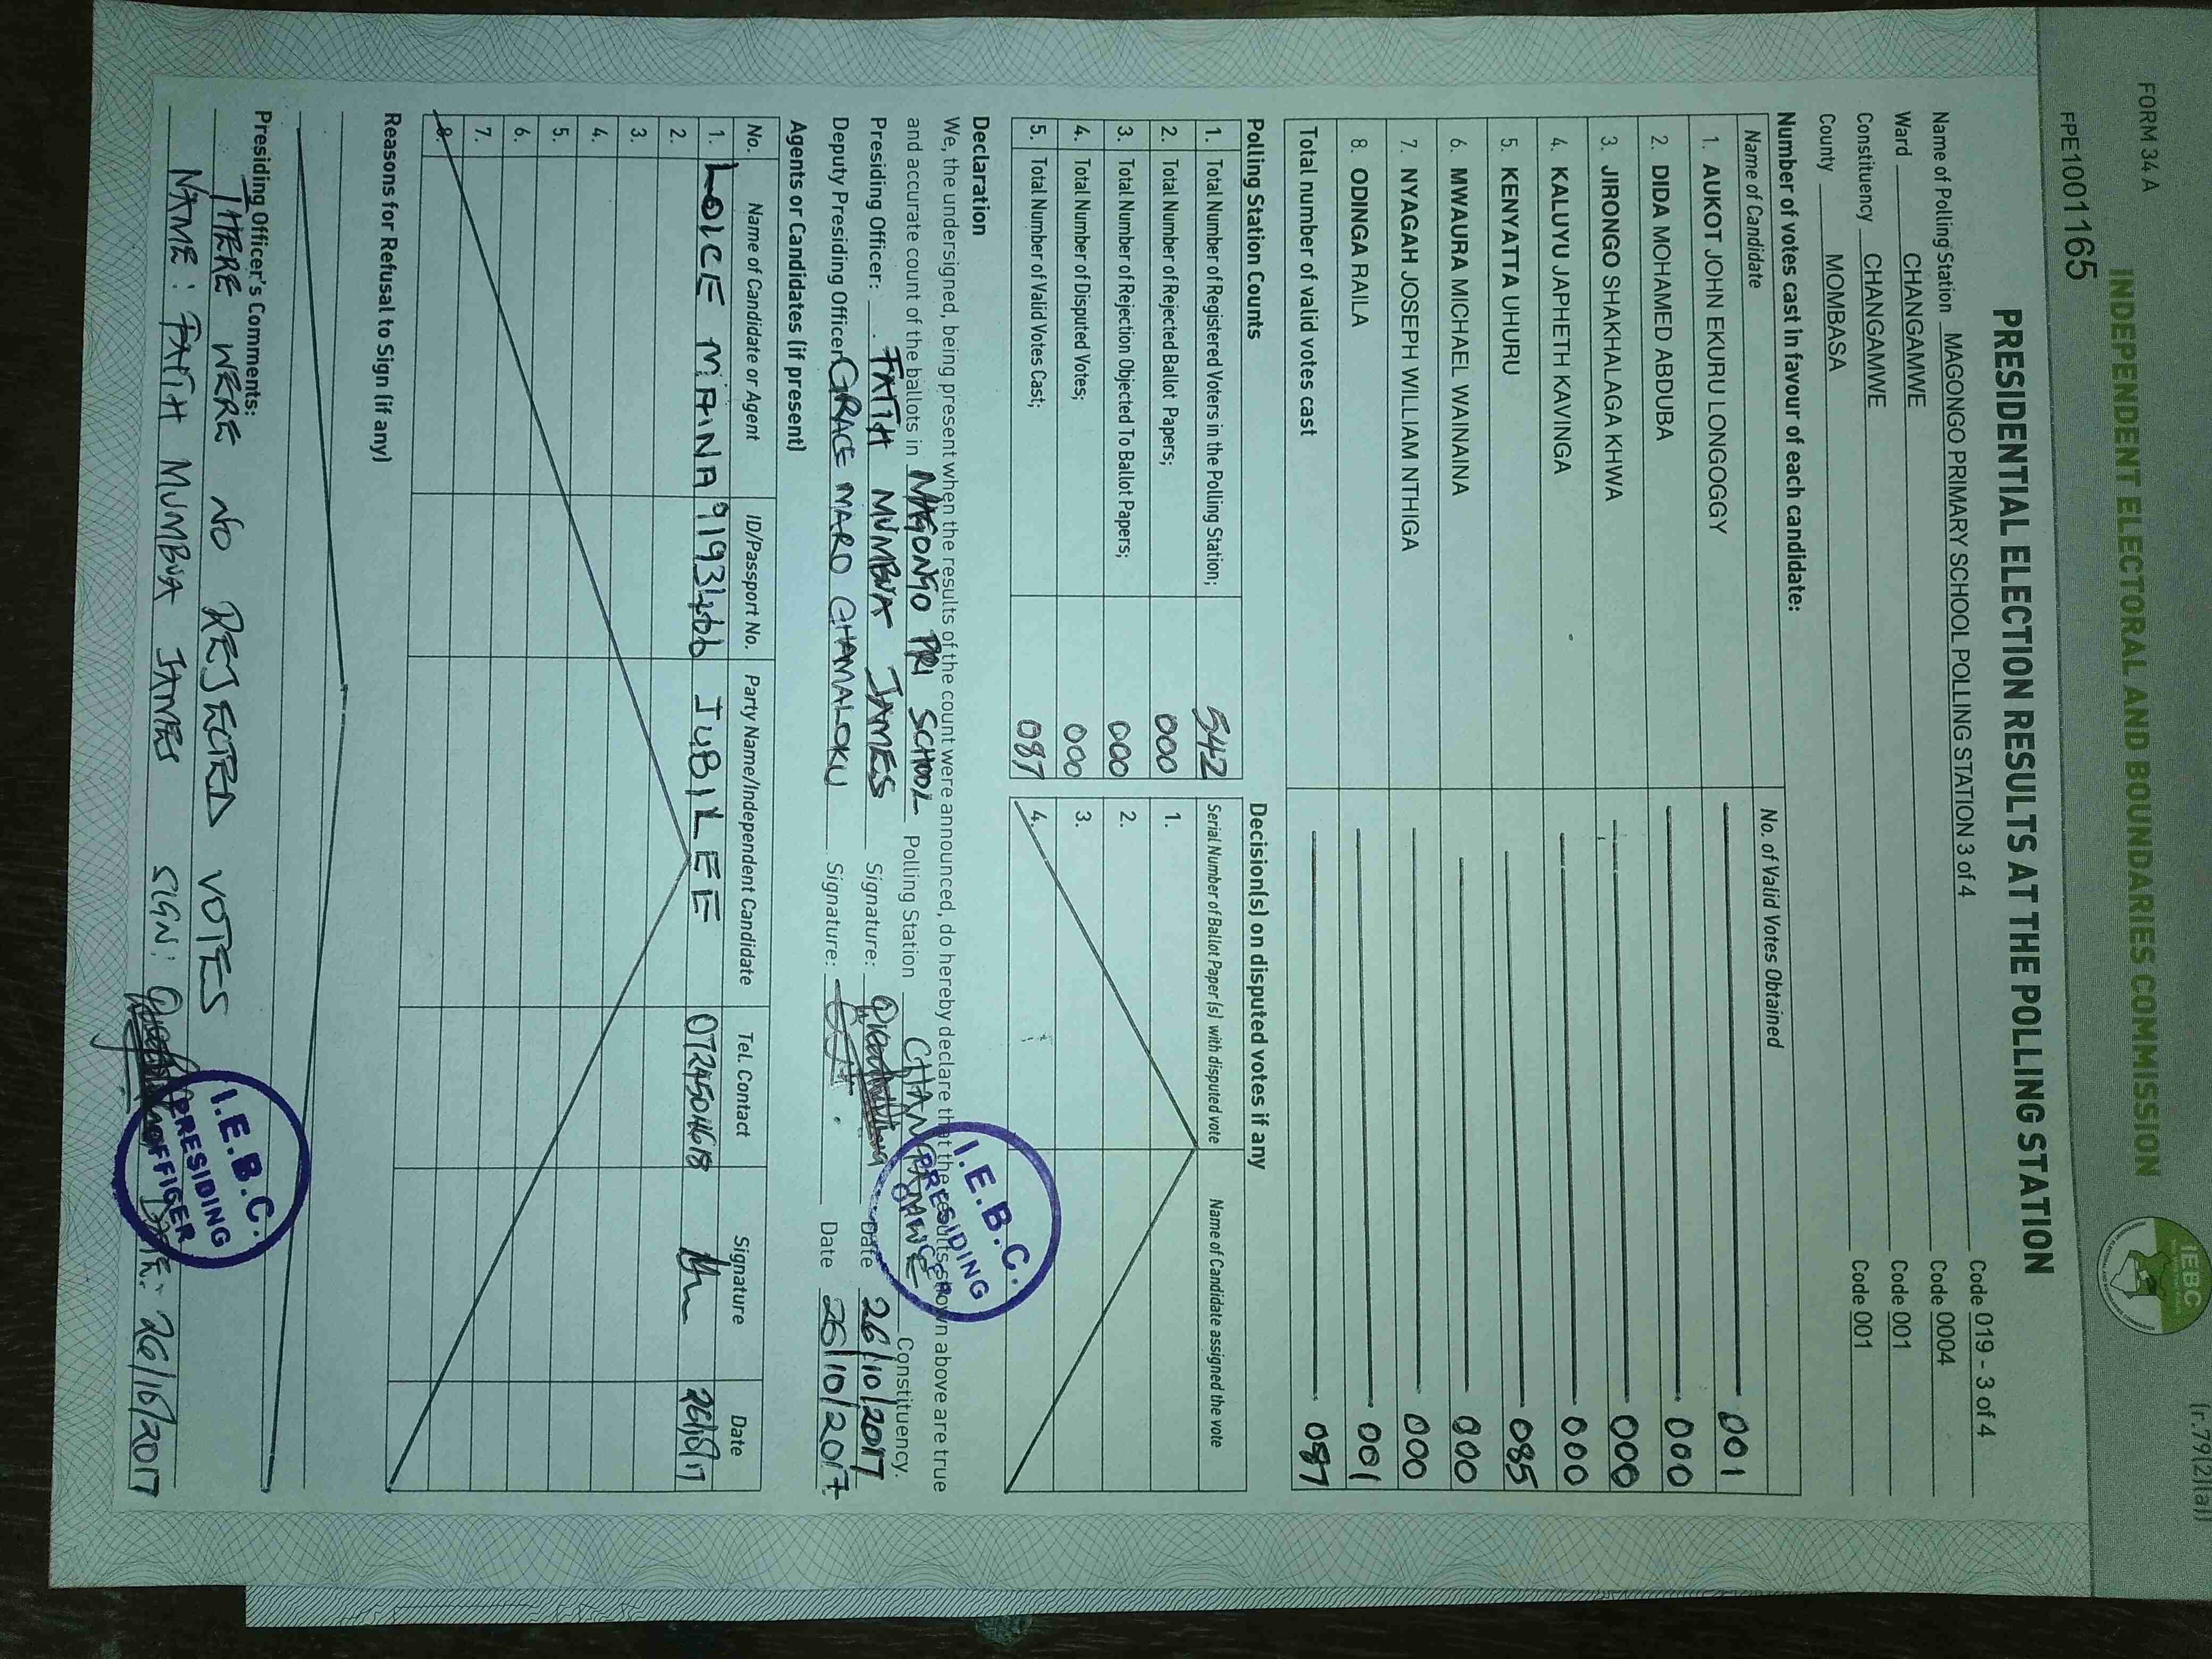 FORM 34 A
(r.79(2)(a))
INDEPENDENT ELECTORAL AND BOUNDARIES COMMISSION
IEBC
FPE1001165
PRESIDENTIAL ELECTION RESULTS AT THE POLLING STATION
Name of Polling Station MAGONGO PRIMARY SCHOOL POLLING STATION 3 of 4 Code 019 - 3 of 4
Ward CHANGAMWE Code 0004
Constituency CHANGAMWE Code 001
County MOMBASA Code 001
Number of votes cast in favour of each candidate:
Name of Candidate No. of Valid Votes Obtained
1. AUKOT JOHN EKURU LONGOGGY 001
2. DIDA MOHAMED ABDUBA 000
3. JIRONGO SHAKHALAGA KHWA 000
4. KALUYU JAPHETH KAVINGA 000
5. KENYATTA UHURU 085
6. MWAURA MICHAEL WAINAINA 000
7. NYAGAH JOSEPH WILLIAM NTHIGA 000
8. ODINGA RAILA 001
Total number of valid votes cast 087
Polling Station Counts
1. Total Number of Registered Voters in the Polling Station; 542
2. Total Number of Rejected Ballot Papers; 000
3. Total Number of Rejection Objected To Ballot Papers; 000
4. Total Number of Disputed Votes; 000
5. Total Number of Valid Votes Cast; 087
Decision(s) on disputed votes if any
Serial Number of Ballot Paper(s) with disputed vote Name of Candidate assigned the vote
1.
2.
3.
4.
Declaration
We, the undersigned, being present when the results of the count were announced, do hereby declare that the results shown above are true
and accurate count of the ballots in MAGONGO PRI SCHOOL Polling Station CHANGAMWE Constituency.
Presiding Officer: FAITH MUMBUA JAMES Signature: Date 26/10/2017
Deputy Presiding Officer GRACE MARO CHAMALOKU Signature: Date 26/10/2017
I.E.B.C.
PRESIDING
Agents or Candidates (if present)
No. Name of Candidate or Agent ID/Passport No. Party Name/Independent Candidate Tel. Contact Signature Date
1. LOICE MAINA JUBILEE 26/10/17
2.
3.
4.
5.
6.
7.
8.
Reasons for Refusal to Sign (if any)
Presiding Officer's Comments:
THERE WERE NO REJECTED VOTES
NAME: FAITH MUMBUA JAMES SIGN: DATE: 26/10/2017
I.E.B.C.
PRESIDING
OFFICER